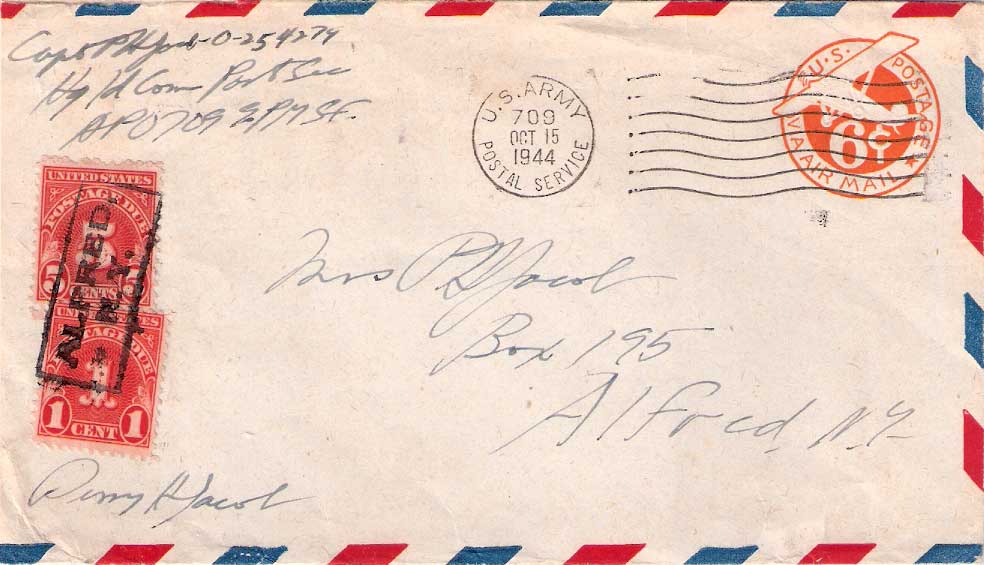 Capt P H Jacob-O-254274
Hq Com Port Sec
APO 709 % PM SF.
U.S. ARMY
709
OCT 15
1944
POSTAL SERVICE
U.S. POSTAGE
6¢
VIA AIR MAIL
UNITED STATES
POSTAGE DUE
5 CENTS 5
UNITED STATES
POSTAGE DUE
1
1 CENT 1
ALFRED,
N.Y.
Mrs P H Jacob
Box 195
Alfred, N.Y.
Perry H Jacob